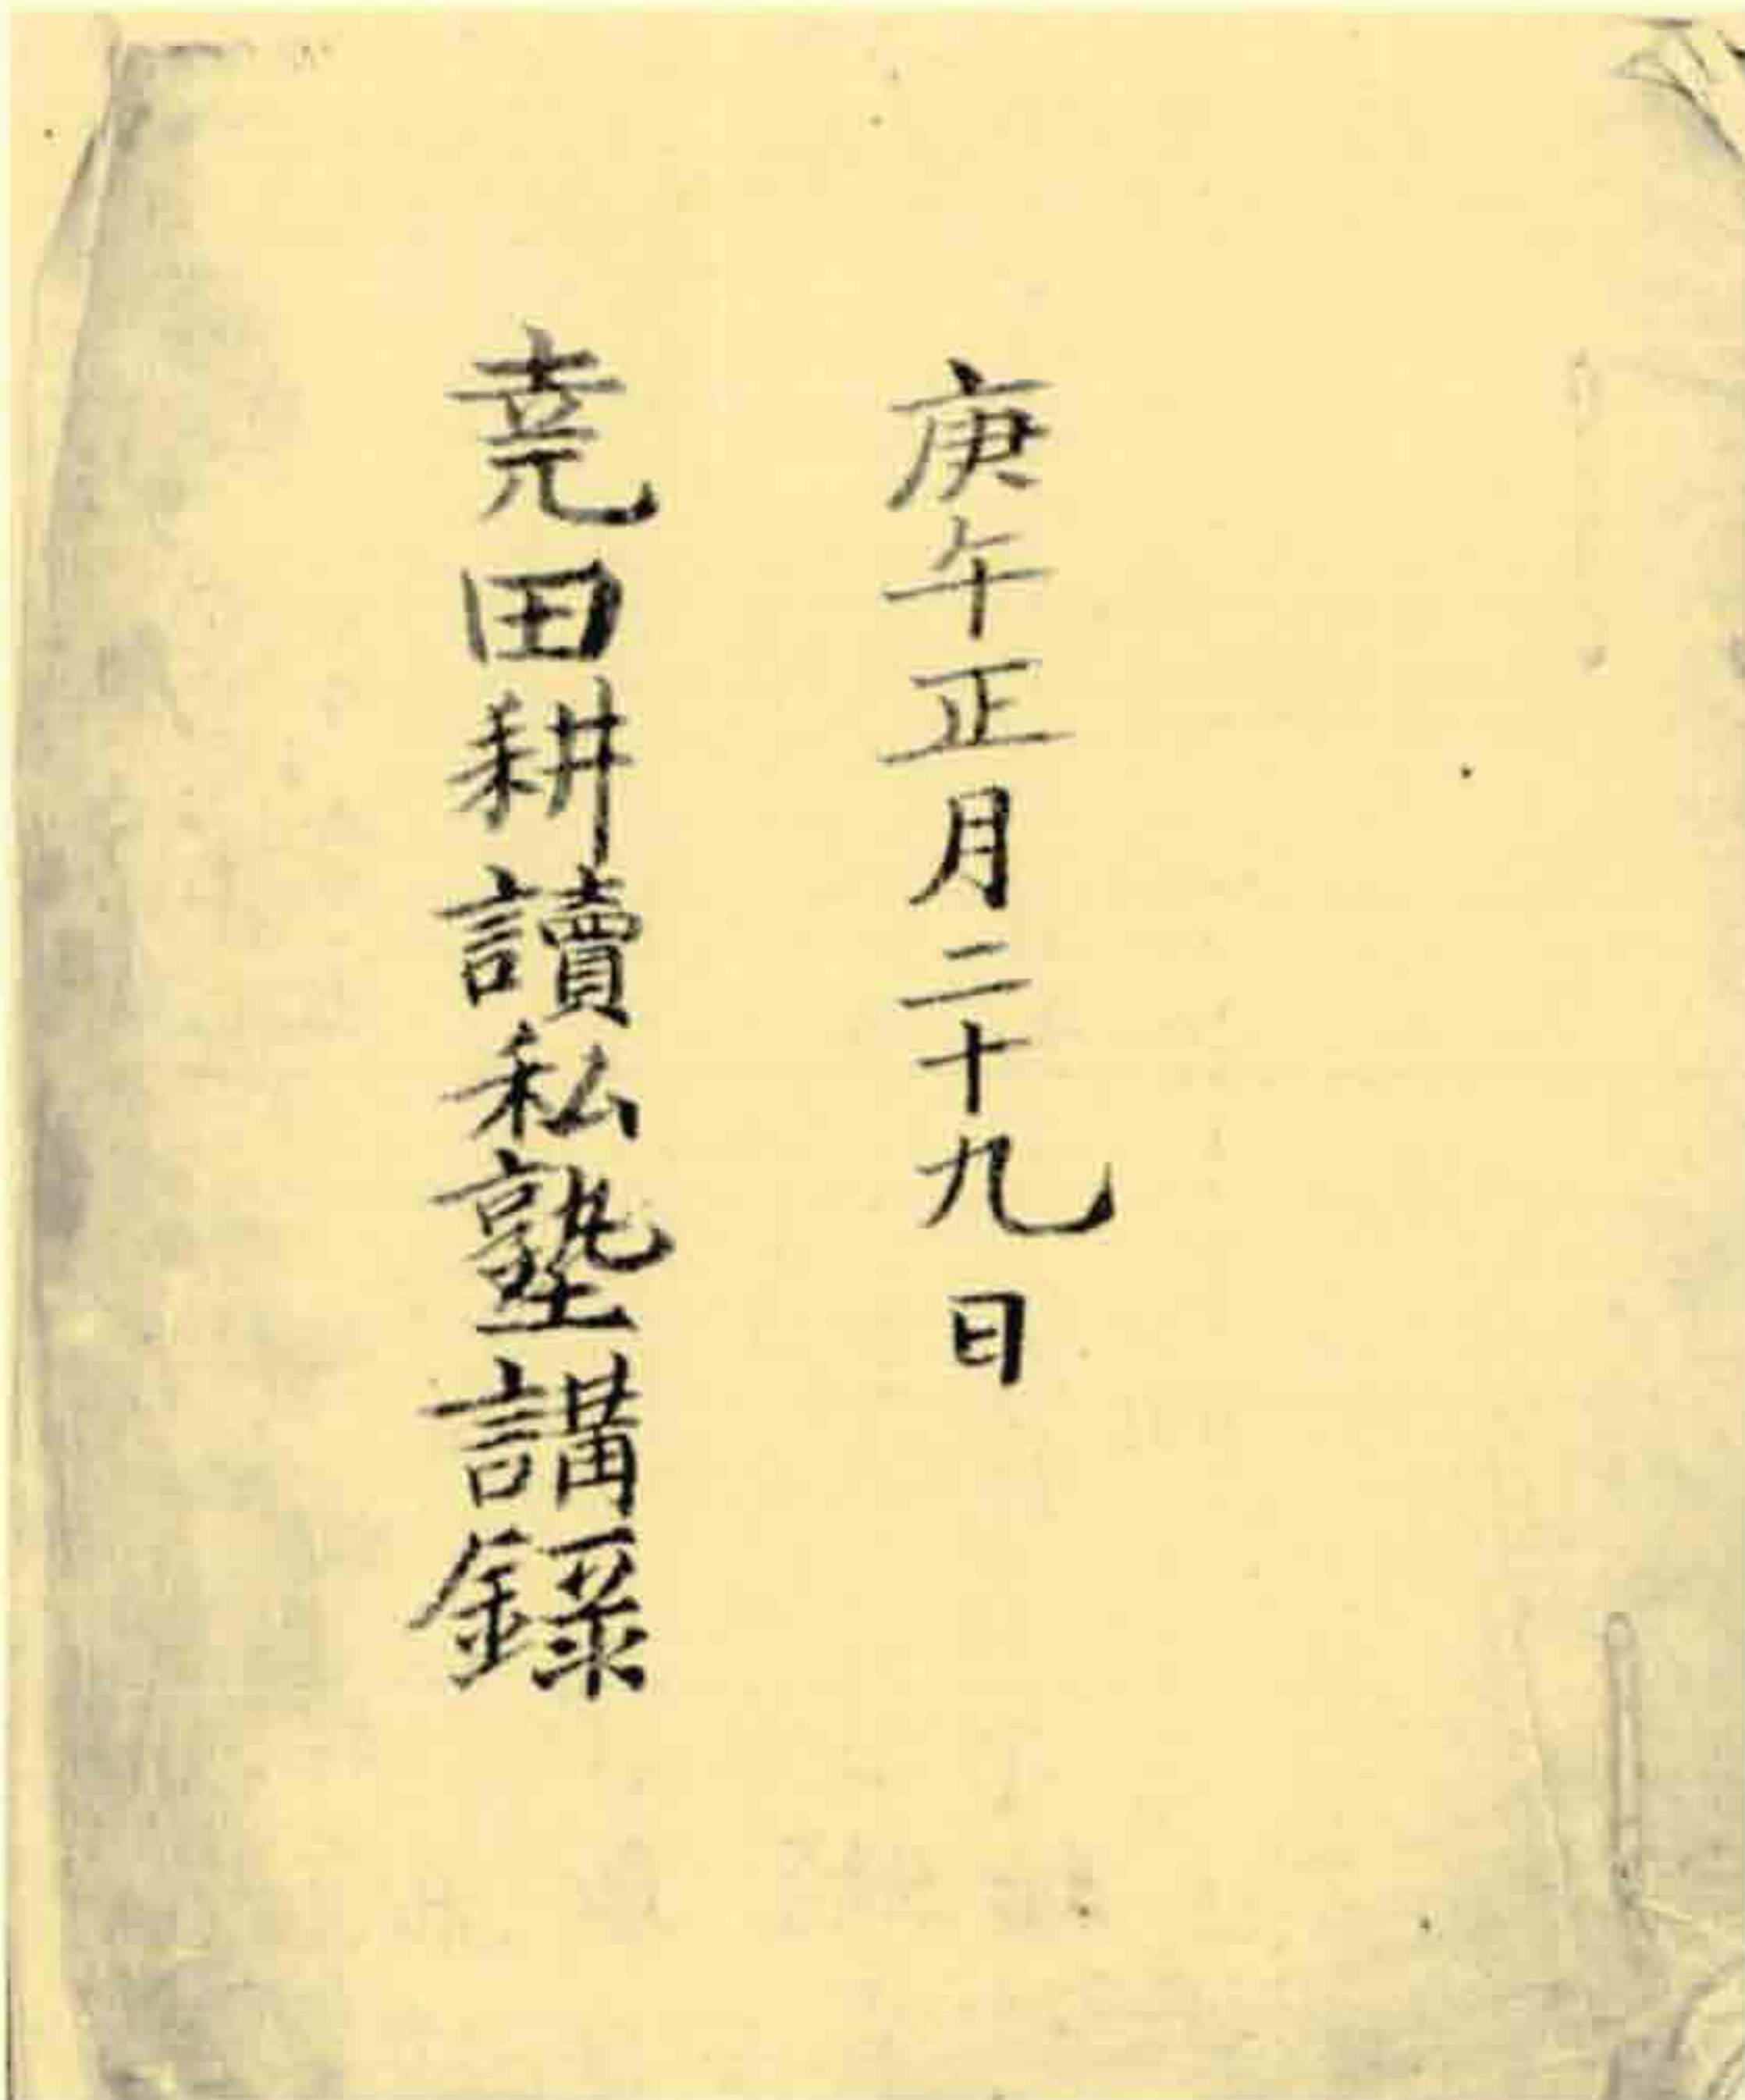 庚午正月二十九日
堯田耕讀私塾講錄